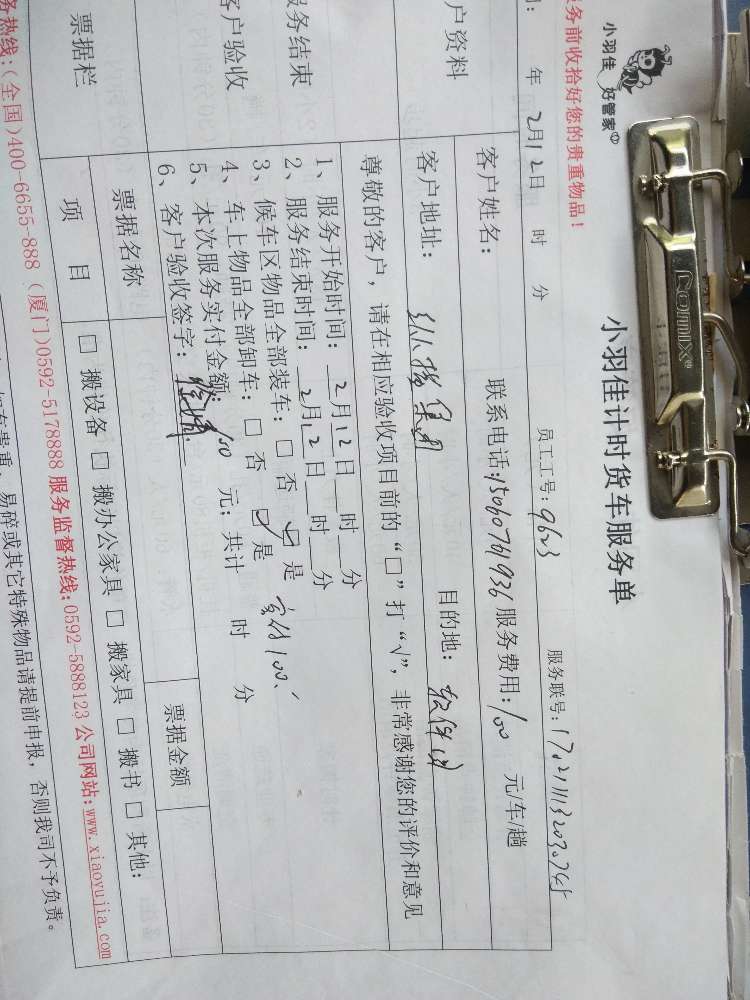 小羽佳 好管家
小羽佳计时货车服务单
务前收拾好您的贵重物品！
员工工号：9623
年 2月12日 时 分
户资料
客户姓名：
联系电话：15060701936
服务费用：100 元/车/趟
客户地址：
目的地：软件园
尊敬的客户，请在相应验收项目前的“□”打“√”，非常感谢您的评价和意见
务结束
户验收
1、服务开始时间：2月12日 时 分
2、服务结束时间：2月12日 时 分
3、候车区物品全部装车：□ 否 ☑ 是
4、车上物品全部卸车：□ 否 ☑ 是 实付100、
5、本次服务实付金额：100 元；共计 时 分
6、客户验收签字：
票据栏
票据名称
票据金额
项 目
□ 搬设备 □ 搬办公家具 □ 搬家具 □ 搬书 □ 其他：
务热线：(全国)400-6655-888 (厦门)0592-5178888 服务监督热线：0592-5888123 公司网站：www.xiaoyujia.com
易碎或其它特殊物品请提前申报，否则我司不予负责。
Comix